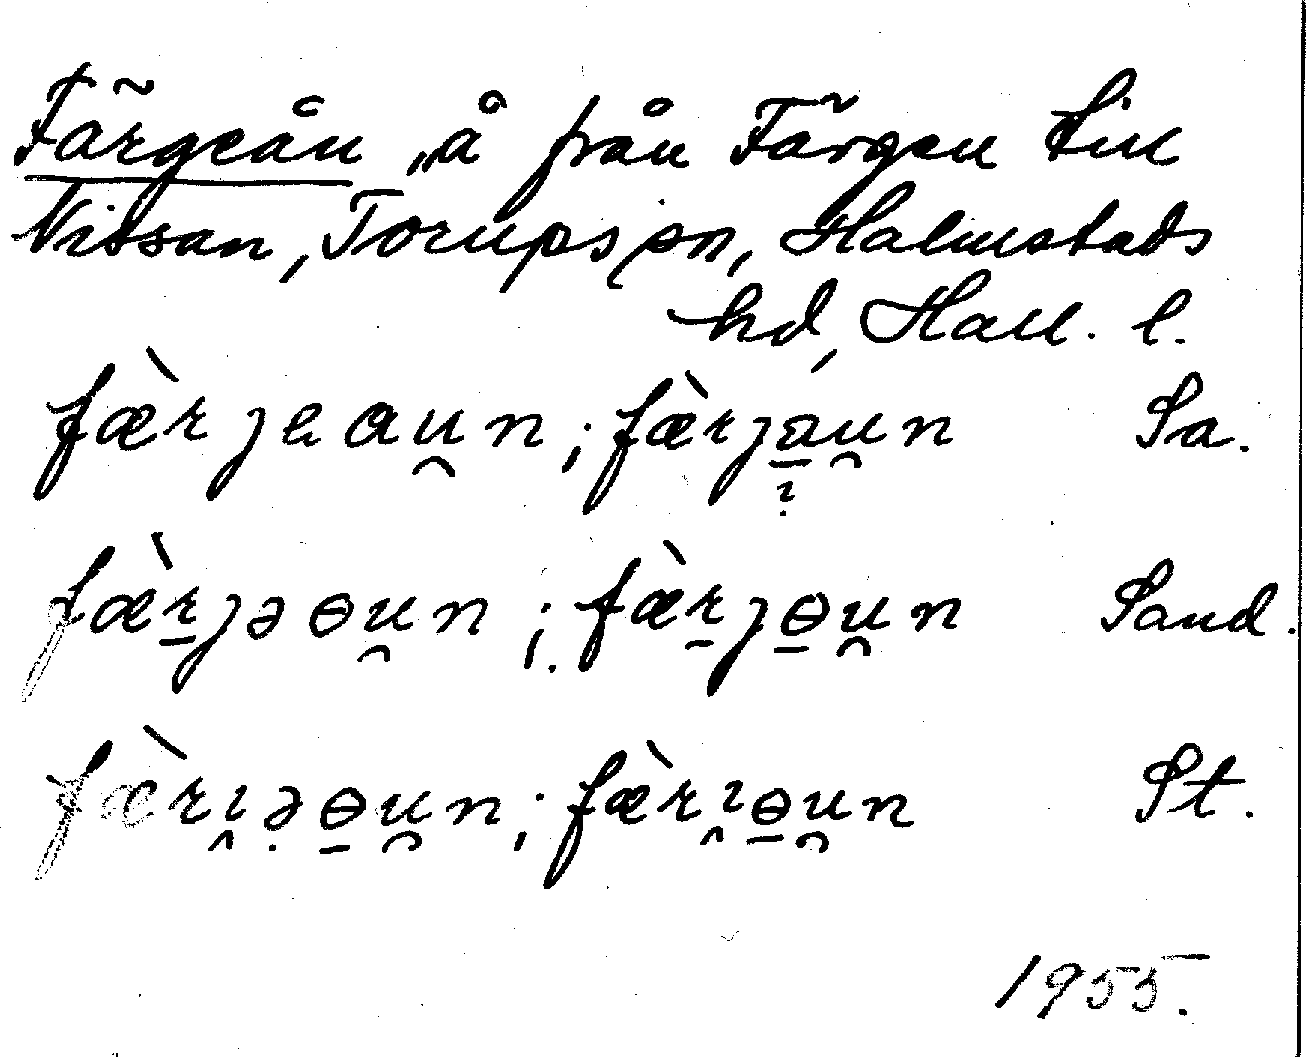 Färgeån, å från Färgen till
Nissan, Torups sn, Halmstads
hd, Hall. l.
fæ̀rjeau̯n; fæ̀rja̱u̯n Sa.
fæ̀ṟjəɵu̯n; fæ̀ṟjɵ̱u̯n Sand.
fæ̀rı̯ə̣ɵ̱u̯n; fæ̀rı̯ɵ̱u̯n St.
1955.